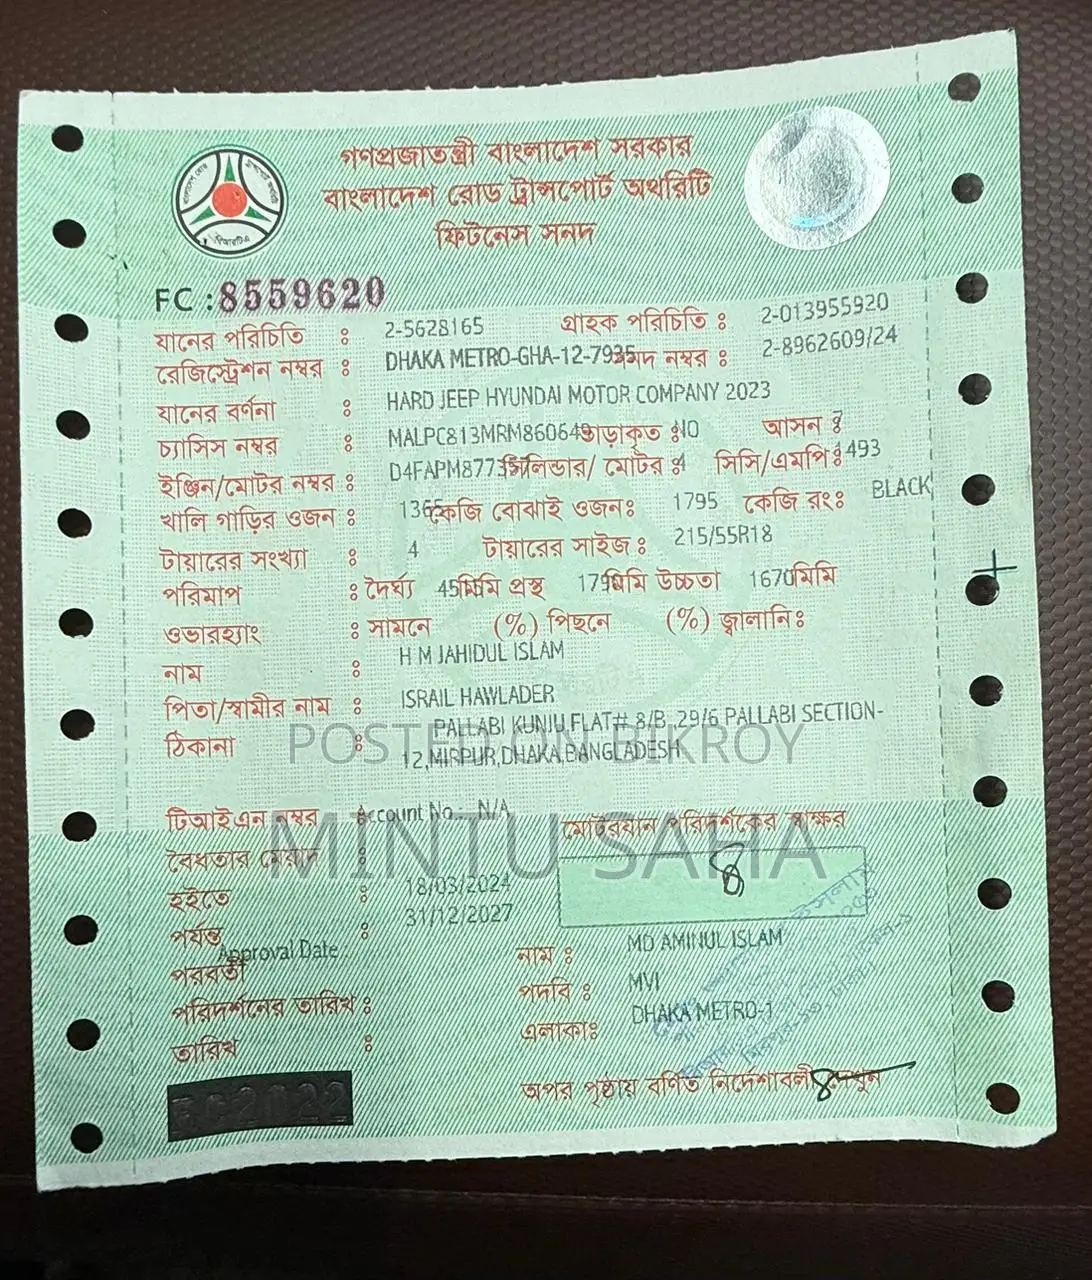 গণপ্রজাতন্ত্রী বাংলাদেশ সরকার
বাংলাদেশ রোড ট্রান্সপোর্ট অথরিটি
ফিটনেস সনদ
FC : 8559620
যানের পরিচিতি : 2-5628165 গ্রাহক পরিচিতি : 2-013955920
রেজিস্ট্রেশন নম্বর : DHAKA METRO-GHA-12-7935 সনদ নম্বর : 2-8962609/24
যানের বর্ণনা : HARD JEEP HYUNDAI MOTOR COMPANY 2023
চ্যাসিস নম্বর : MALPC813MRM860649 ভাড়াকৃত : NO আসন :
ইঞ্জিন/মোটর নম্বর : সিলিন্ডার/ মোটর : 4 সিসি/এমপি : 1493
খালি গাড়ির ওজন : 1365 কেজি বোঝাই ওজন : 1795 কেজি রং : BLACK
টায়ারের সংখ্যা : 4 টায়ারের সাইজ : 215/55R18
পরিমাপ : দৈর্ঘ্য মিমি প্রস্থ 1790 মিমি উচ্চতা 1670মিমি
ওভারহ্যাং : সামনে (%) পিছনে (%) জ্বালানি :
নাম : H M JAHIDUL ISLAM
পিতা/স্বামীর নাম : ISRAIL HAWLADER
ঠিকানা : PALLABI KUNJU,FLAT# 8/B ,29/6 PALLABI SECTION-
12,MIRPUR,DHAKA,BANGLADESH
POSTED ON BIKROY
টিআইএন নম্বর : Account No.: N/A
মোটরযান পরিদর্শকের স্বাক্ষর
MINTU SAHA
বৈধতার মেয়াদ :
হইতে : 18/03/2024
পর্যন্ত : 31/12/2027
Approval Date :
পরবর্তী
পরিদর্শনের তারিখ :
তারিখ :
নাম : MD AMINUL ISLAM
পদবি : MVI
এলাকা : DHAKA METRO-1
অপর পৃষ্ঠায় বর্ণিত নির্দেশাবলী দেখুন
FC2022